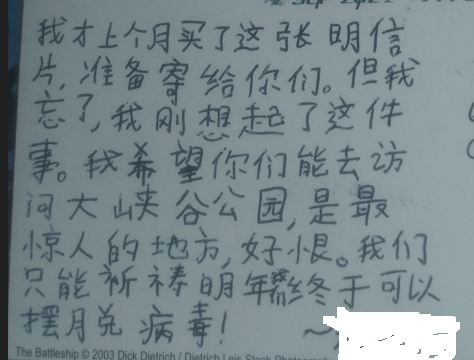 我才上个月买了这张明信
片,准备寄给你们。但我
忘了,我刚想起了这件
事。我希望你们能去访
问大峡谷公园,是最
惊人的地方,好恨。我们
只能祈祷明年终于可以
摆月兑病毒!
The Battleship © 2003 Dick Dietrich / Dietrich Leis Stock